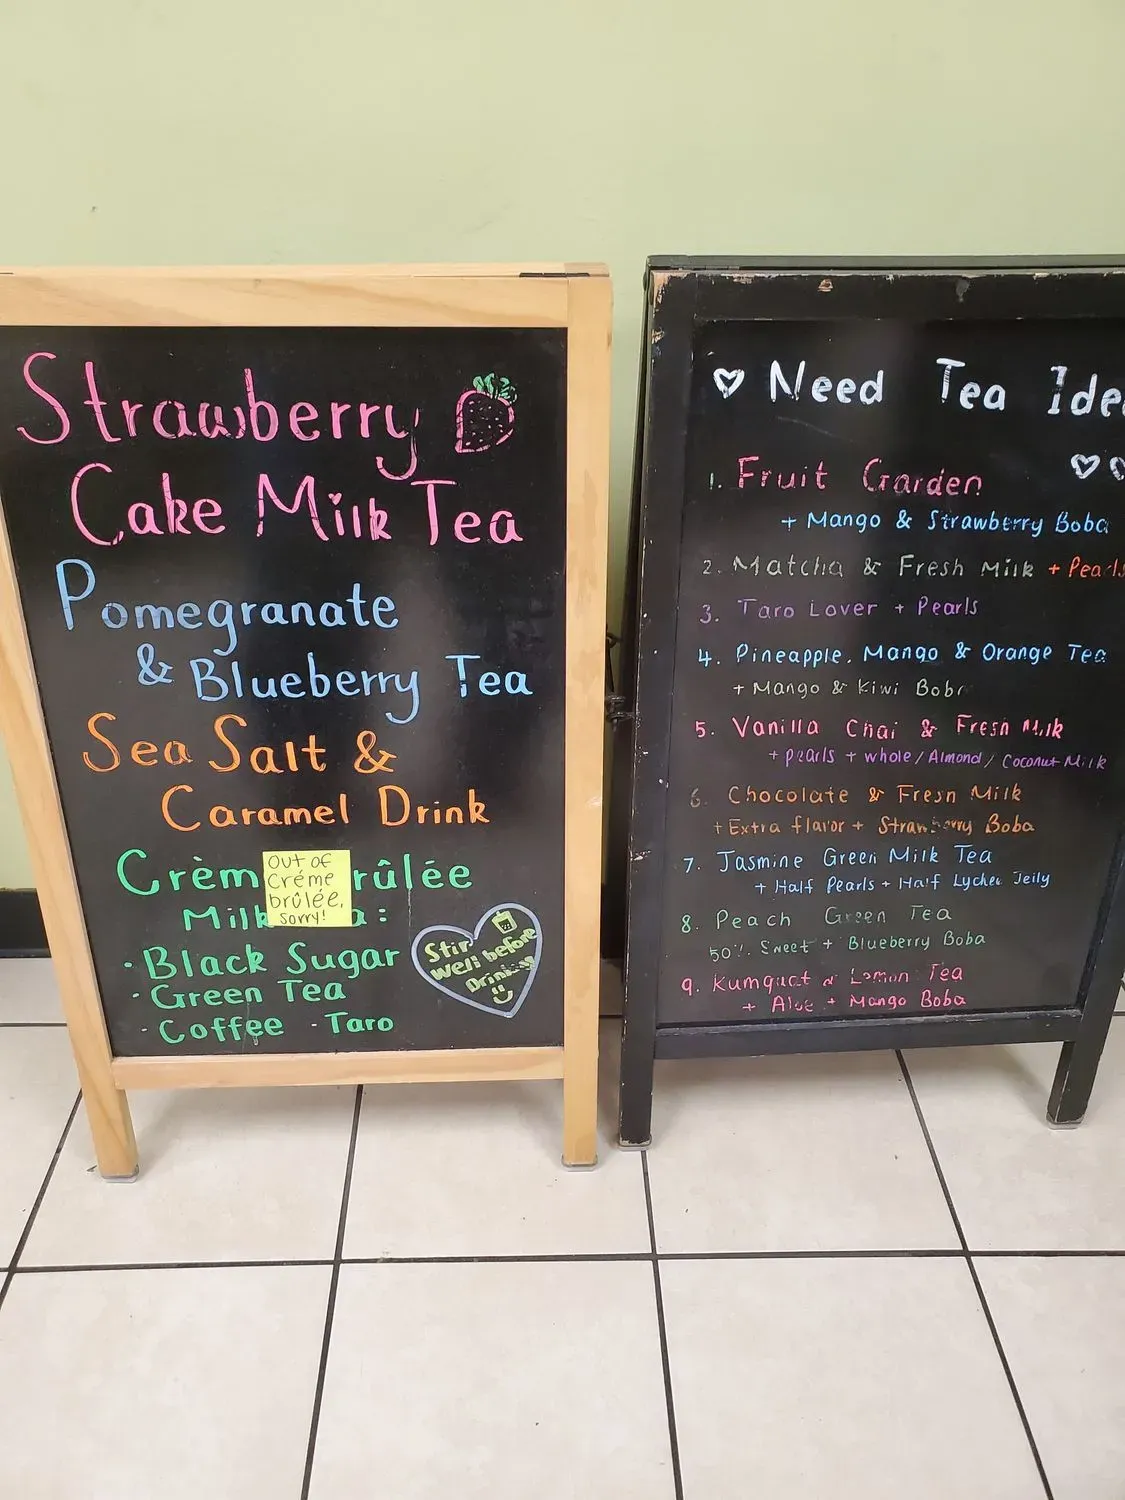 Strawberry
Cake Milk Tea
Pomegranate
& Blueberry Tea
Sea Salt &
Caramel Drink
Crèm rûlée
Out of
créme
brûlée,
sorry!
Milk a:
· Black Sugar
· Green Tea
· Coffee · Taro
Stir
well before
Drinking
♡ Need Tea Ide
1. Fruit Garden
+ Mango & Strawberry Boba
2. Matcha & Fresh Milk + Pearls
3. Taro Lover + Pearls
4. Pineapple, Mango & Orange Tea
+ Mango & Kiwi Boba
5. Vanilla Chai & Fresh Milk
+ pearls + whole / Almond / Coconut Milk
6. Chocolate & Fresh Milk
+ Extra flavor + Strawberry Boba
7. Jasmine Green Milk Tea
+ Half Pearls + Half Lychee Jelly
8. Peach Green Tea
50% Sweet + Blueberry Boba
9. Kumquat & Lemon Tea
+ Aloe + Mango Boba